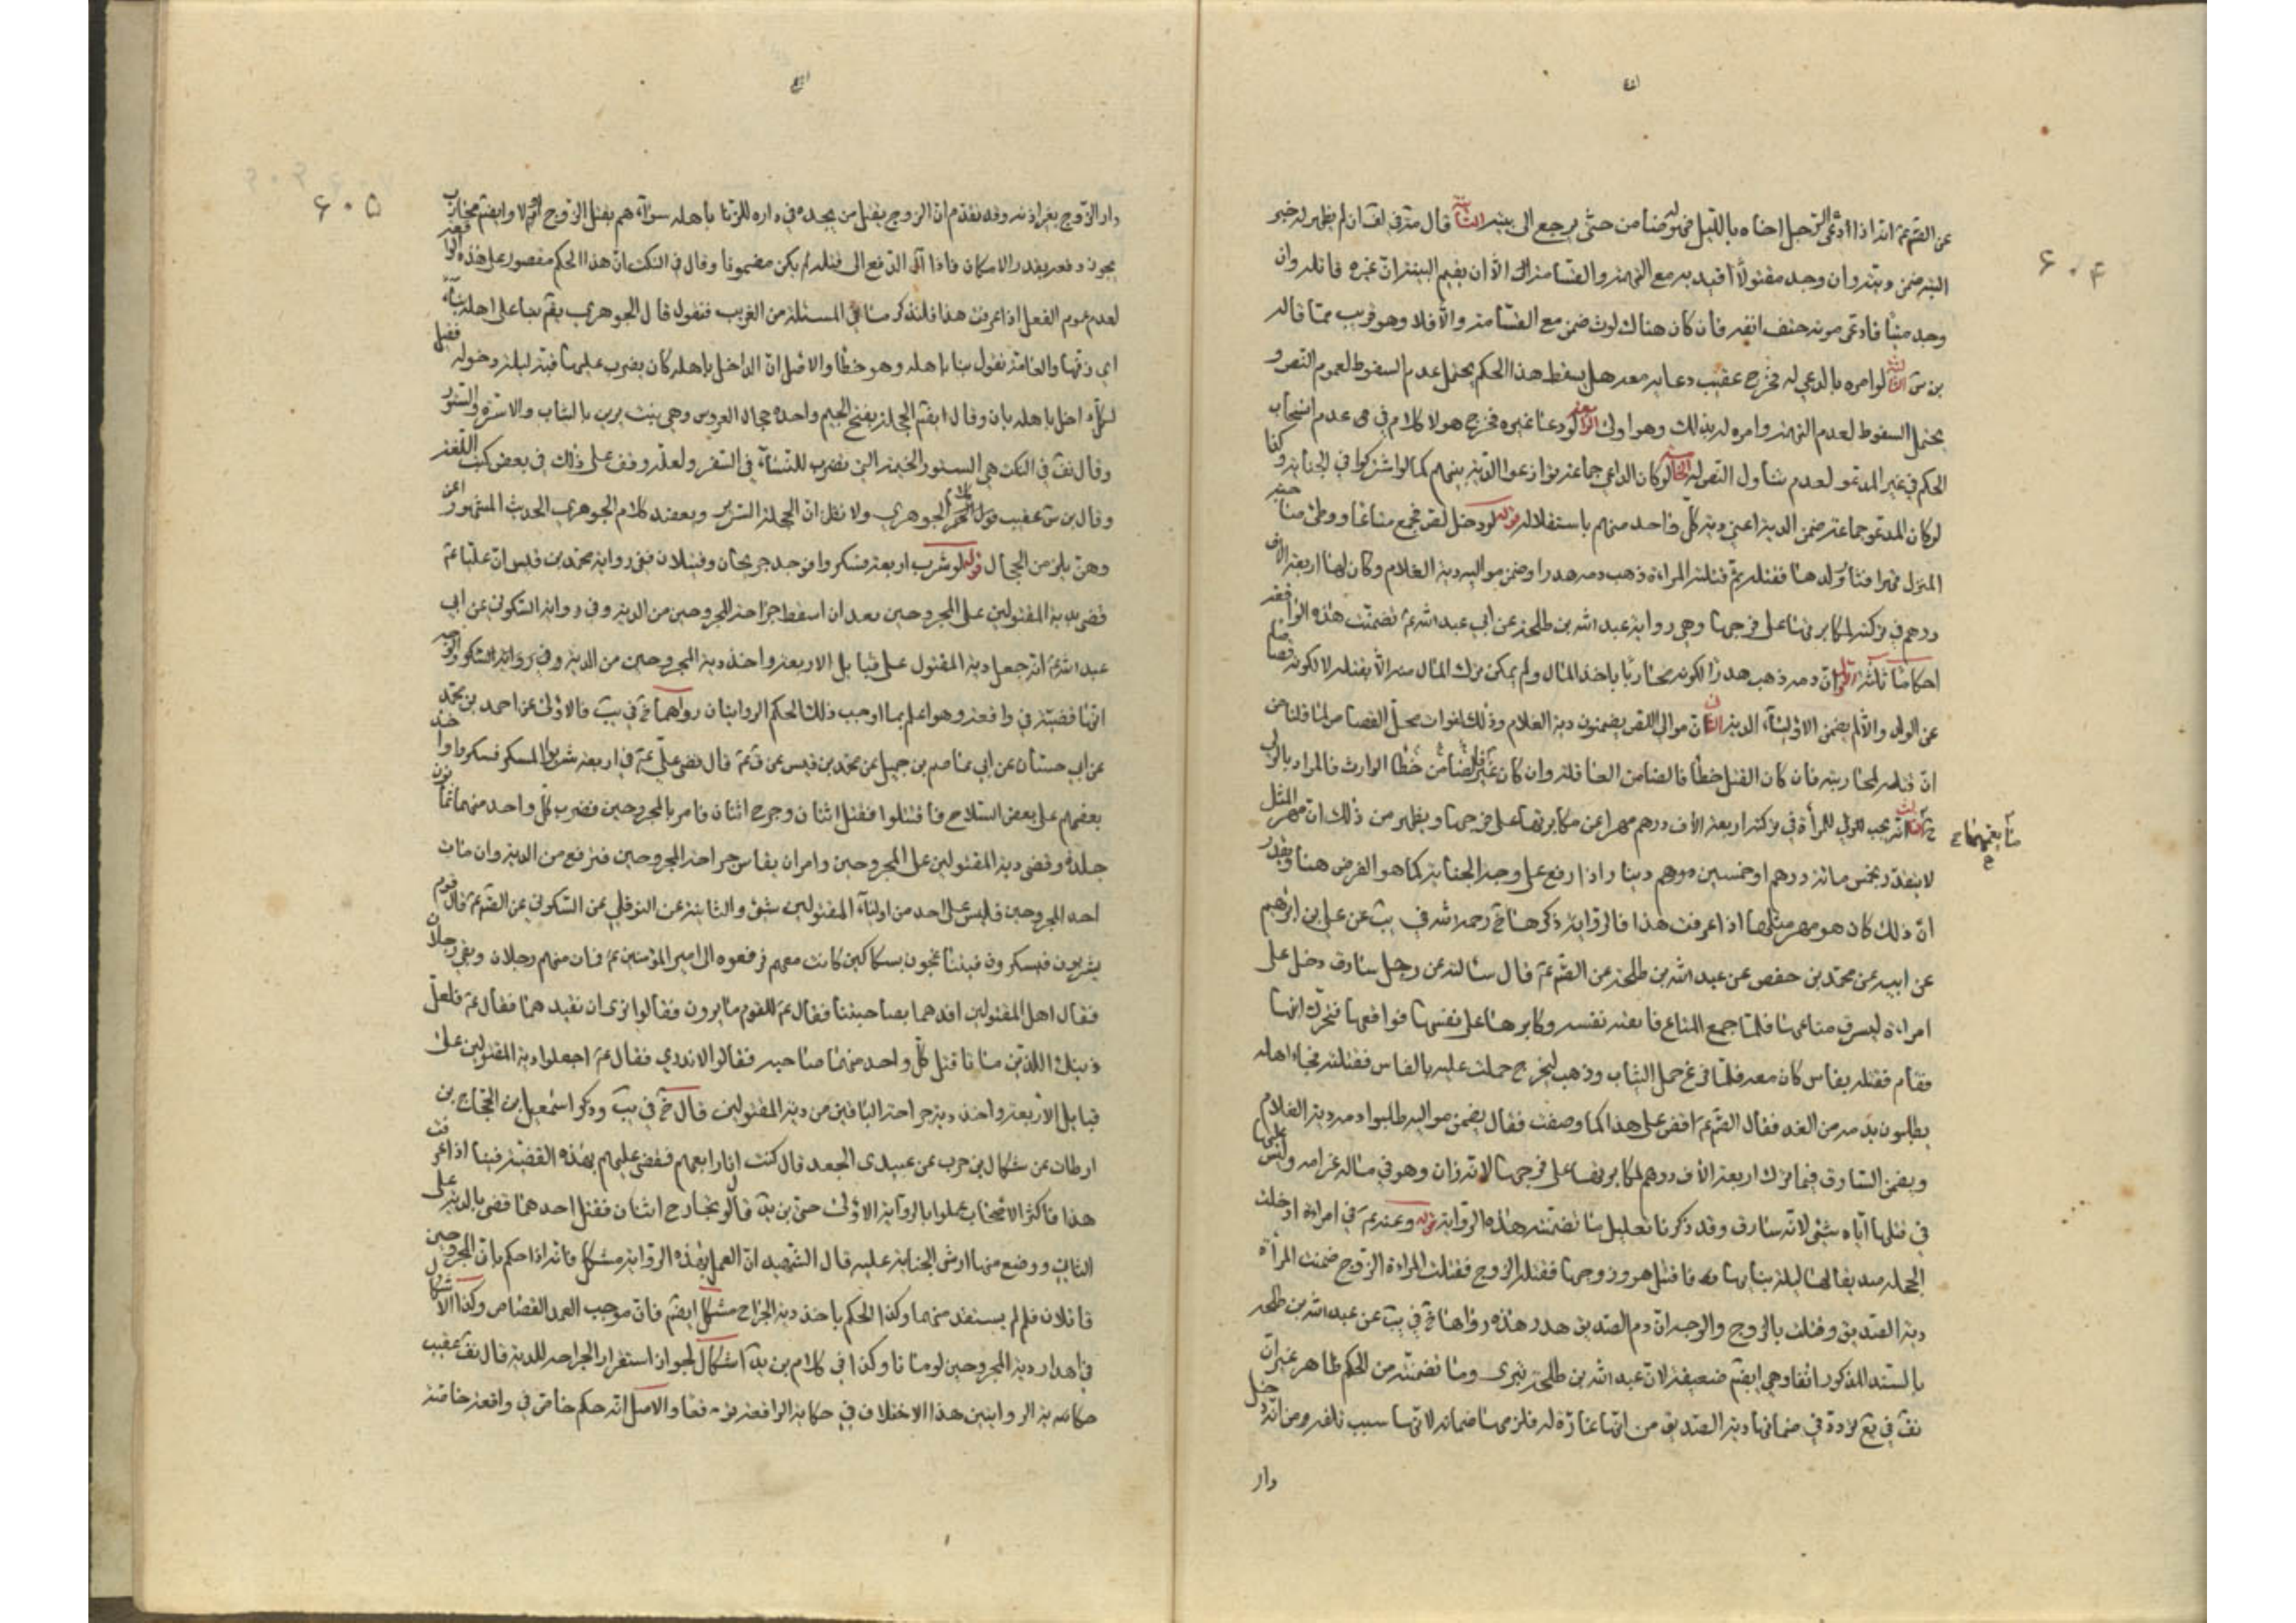 عن الصم عم انه اذا ادعى الرجل اخاه بالليل فهو له ضامن حتى يرجع الى بيته الثانية قال مة في لف ان لم يظهر له خبر
البتة ضمن ديته وان وجد مقتولا اقيد به مع التهمة والقسامة الا ان يقيم البينة ان غيره قاتله وان
وجد ميتا فادعى موته حتف انفه فان كان هناك لوث ضمن مع القسامة والا فلا وهو قريب مما قاله
بن س الثالثة لو امره بالدعي له فخرج عقيب دعايه معه هل يسقط هذا الحكم يحتمل عدم السقوط لعموم النص و
يحتمل السقوط لعدم التهمة وامره له بذلك وهو اولى الرابعة لو دعا غيره فخرج هو لا كلام في عدم انسحاب
الحكم في غير المدعو لعدم تناول النص له الخامسة لو كان الداعي جماعة توازعوا الدية بينهم كما لو اشتركوا في الجناية وكذا
لو كان المدعو جماعة ضمن الدية اعني دية كل واحد منهم باستقلاله قوله لو دخل لص فجمع متاعا ووطئ صاحبة
المنزل قهرا فثار ولدها فقتله ثم قتلته المراءة ذهب دمه هدرا وضمن مواليه دية الغلام وكان لها اربعة الاف
درهم في تركته لمكابرته اياها على فرجها وهي رواية عبد الله بن طلحة عن ابي عبد الله عم تضمنت هذه الواقعة
احكاما ثلثة الاول ان دمه ذهب هدرا لكونه محاربا باخذ المال ولم يمكن ترك المال منه الا بقتله لا لكونه قصاصا
عن الولد والا لم يضمن الاولياء الدية الثاني ان موالي اللص يضمنون دية الغلام وذلك لفوات محل القصاص لما قلنا من
ان قتله لمحاربته فان كان القتل خطأ فالضامن العاقلة وان كان غير خطأ فالضامن الوارث فالمراد بالموالي
الثالث انه يجب للولي للمرأة في تركته اربعة الاف درهم مهرا عن مكابرتها على فرجها ويظهر من ذلك ان مهر المثل
لا يتقدر بخمس مائة درهم او خمسين درهم دينا واذا رفع على وجه الجناية كما هو الفرض هنا ويقدر
ان ذلك كان هو مهر مثلها اذا عرفت هذا فالرواية ذكرها خ رحمه الله في يب عن علي بن ابرهيم
عن ابيه عن محمد بن حفص عن عبد الله بن طلحة عن الصم عم قال سالته عن رجل سارق دخل على
امراءة ليسرق متاعها فلما جمع المتاع فاتبعته نفسه وكابرها على نفسها فواقعها فتحرك ابنها
فقام فقتله بفاس كان معه فلما فرغ حمل الثياب وذهب ليخرج حملت عليه بالفاس فقتلته فجاء اهله
يطلبون بدمه من الغد فقال الصم عم اقض على هذا كما وصفت فقال يضمن مواليه طلبوا دمه دية الغلام
ويضمن السارق فيما ترك اربعة الاف درهم لمكابرتها على فرجها لانه زان وهو في ماله غرامه وليس عليها
في قتلها اياه شئ لانه سارق وقد ذكرنا تعليل ما تضمنته هذه الرواية قوله وعنه عم في امراءة ادخلت
الحجلة صديقا لها ليلة بنائها فاقتتل هو وزوجها فقتله الزوج فقتلت المراءة الزوج ضمنت المرأة
دية الصديق وقتلت بالزوج والوجه ان دم الصديق هدر هذه رواها خ في يب عن عبد الله بن طلحة
بالسند المذكور انفا وهي ايضا ضعيفة لان عبد الله بن طلحة بتري وما تضمنته من الحكم ظاهر غير ان
نف في يع تردد في ضمانها دية الصديق من انها غارة له فلزمها ضمانه لانها سبب تلفه ومن انه دخل
دار
۶۰۴
دار الزوج بغير اذنه وقد تقدم ان الزوج يقتل من يجده في داره للزنا باهله سواء هم بقتل الزوج ام لا وايضا محارب
يجوز دفعه بقدر الامكان فاذا آل الدفع الى قتله لم يكن مضمونا وقال في النكت ان هذا الحكم مقصور على هذه الواقعة
لعدم عموم الفعل اذا عرفت هذا فلنذكر ما في المسئلة من الغريب فنقول قال الجوهري يقم بنا على اهله بناء
اي زفها والعامة تقول بنا باهله وهو خطأ والاصل ان الداخل باهله كان يضرب عليها قبة ليلة دخوله فقيل
لكل داخل باهله بان وقال ايضا الحجلة بفتح الجيم واحدة حجال العروس وهي بيت يزين بالثياب والاسرة والستور
وقال نف في النكت هي الستور الخيمة التي تضرب للنساء في السفر ولعله وقف على ذلك في بعض كتب اللغة
وقال بن س عقيب قول الجوهري ولا نقل ان الحجلة السرير وبعضد كلام الجوهري الحديث المشهور اعن
وهن يلزمن الحجال قوله لو شرب اربعة فسكروا فوجد جريحان وقتيلان ففي رواية محمد بن قيس ان عليا عم
قضى بدية المقتولين على المجروحين بعد ان اسقط جراحة المجروحين من الدية وفي رواية السكوني عن ابي
عبد الله عم انه جعل دية المقتول على قبايل الاربعة واخذ دية المجروحين من الدية
انها قضية في واقعة وهو اعلم بما اوجب ذلك الحكم الروايتان رواهما خ في يب فالاولى عن احمد بن محمد
عن ابي حستان عن ابي عاصم بن حميد عن محمد بن قيس عن قم عم قال قضى علي عم في اربعة شربوا المسكر فسكروا واخذ
بعضهم على بعض السلاح فاقتتلوا فقتل اثنان وجرح اثنان فامر بالمجروحين فضرب كل واحد منهما ثمانين
جلدة وقضى دية المقتولين على المجروحين وامر ان يقاس جراحة المجروحين فترفع من الدية وان مات
احد المجروحين فليس على احد من اولياء المقتولين شئ والثانية عن النوفلي عن السكوني عن الصم عم قال قوم
يشربون فيسكرون فيتباعجون بسكاكين كانت معهم فرفعوه الى امير المؤمنين عم فمات منهم رجلان وبقي رجلان
فقال اهل المقتولين اقدهما بصاحبينا فقال عم للقوم ما ترون فقالوا نرى ان تقيدهما فقال عم فلعل
ذينك اللذين ماتا قتل كل واحد منهما صاحبه فقالوا لا ندري فقال عم اجعلوا دية المقتولين على
قبايل الاربعة واخذ دية جراحة الباقين من دية المقتولين قال خ في يب وذكر اسمعيل بن الحجاج بن
ارطات عن سماك بن حرب عن عبيدى الجعد قال كنت انا رابعهم فقضى عليهم بهذه القضية فينا اذا عرفت
هذا فاكثر الاصحاب عملوا بالرواية الاولى حتى بن يد قال لو تجارح اثنان فقتل احدهما قضى بالدية على
الثاني ووضع منها ارش الجناية عليه قال الشهيد ان العمل بهذه الرواية مشكل فانه اذا حكم بان المجروحين
قاتلان فلم لم يستقد منهما وكذا الحكم باخذ دية الجراح مشكل ايضا فان موجب العمد القصاص وكذا الاشكال
في اهدار دية المجروحين لو ماتا وكذا في كلام بن يد اشكال لجواز استغراق الجراحة للدية قال نف عقيب
حكايته الروايتين هذا الاختلاف في حكاية الواقعة والاصل انه حكم خاص في واقعة خاصة
۶۰۵